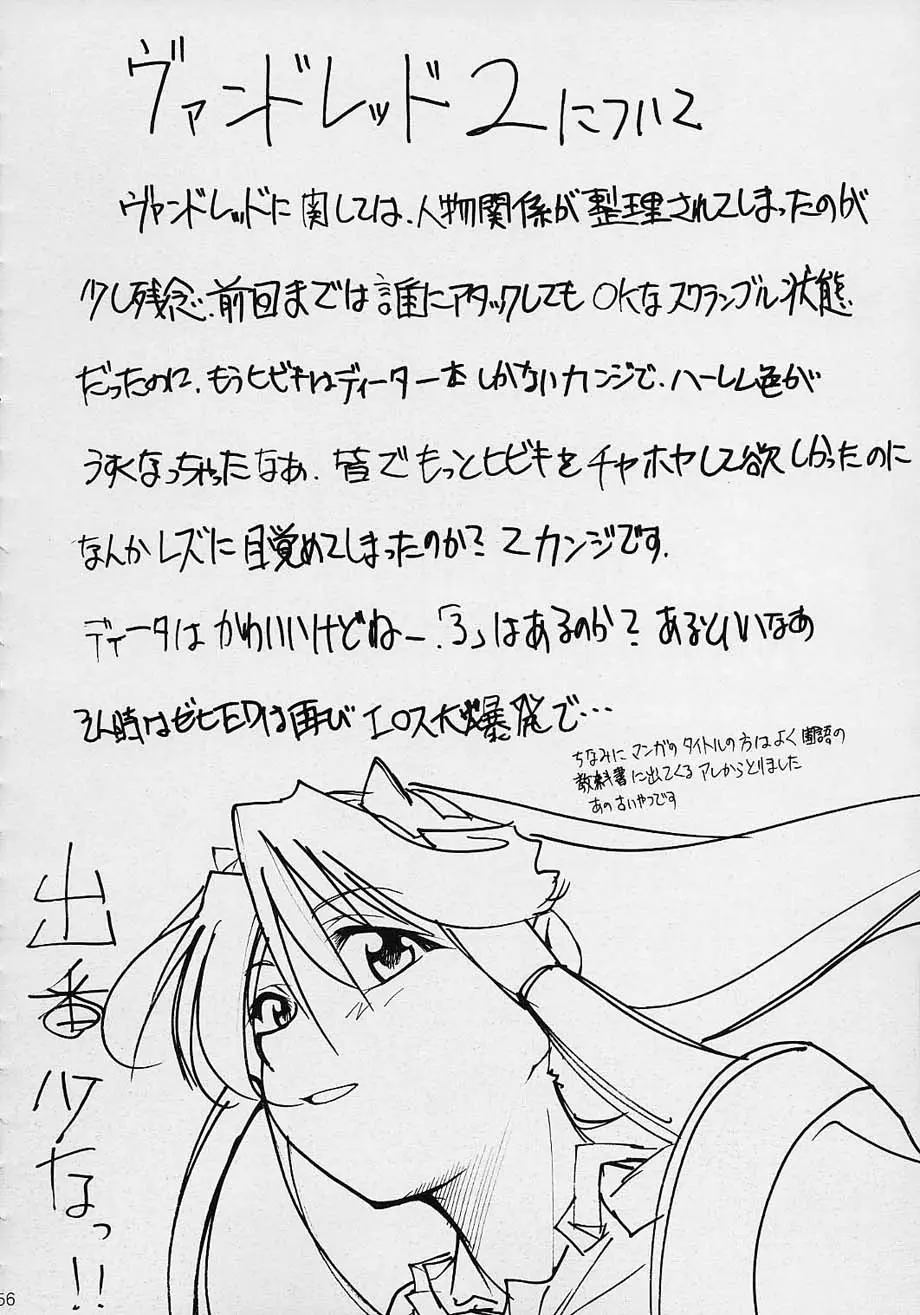 ヴァンドレッド2について
ヴァンドレッドに関しては、人物関係が整理されてしまったのが
少し残念、前回までは誰にアタックしてもOKなスクランブル状態
だったのに、もうヒビキはディーター本しかないカンジで、ハーレム色が
うすくなっちゃったなぁ、皆でもっとヒビキをチヤホヤして欲しかったのに
なんかレズに目覚めてしまったのか?てカンジです、
ディータはかわいいけどねー、「3」はあるのか?あるといいなあ
その時はぜひEDは再びエロス大爆発で…
ちなみにマンガのタイトルの方はよく国語の
教科書に出てくるアレからとりました
あの古いやつです
出番少なっ!!
56